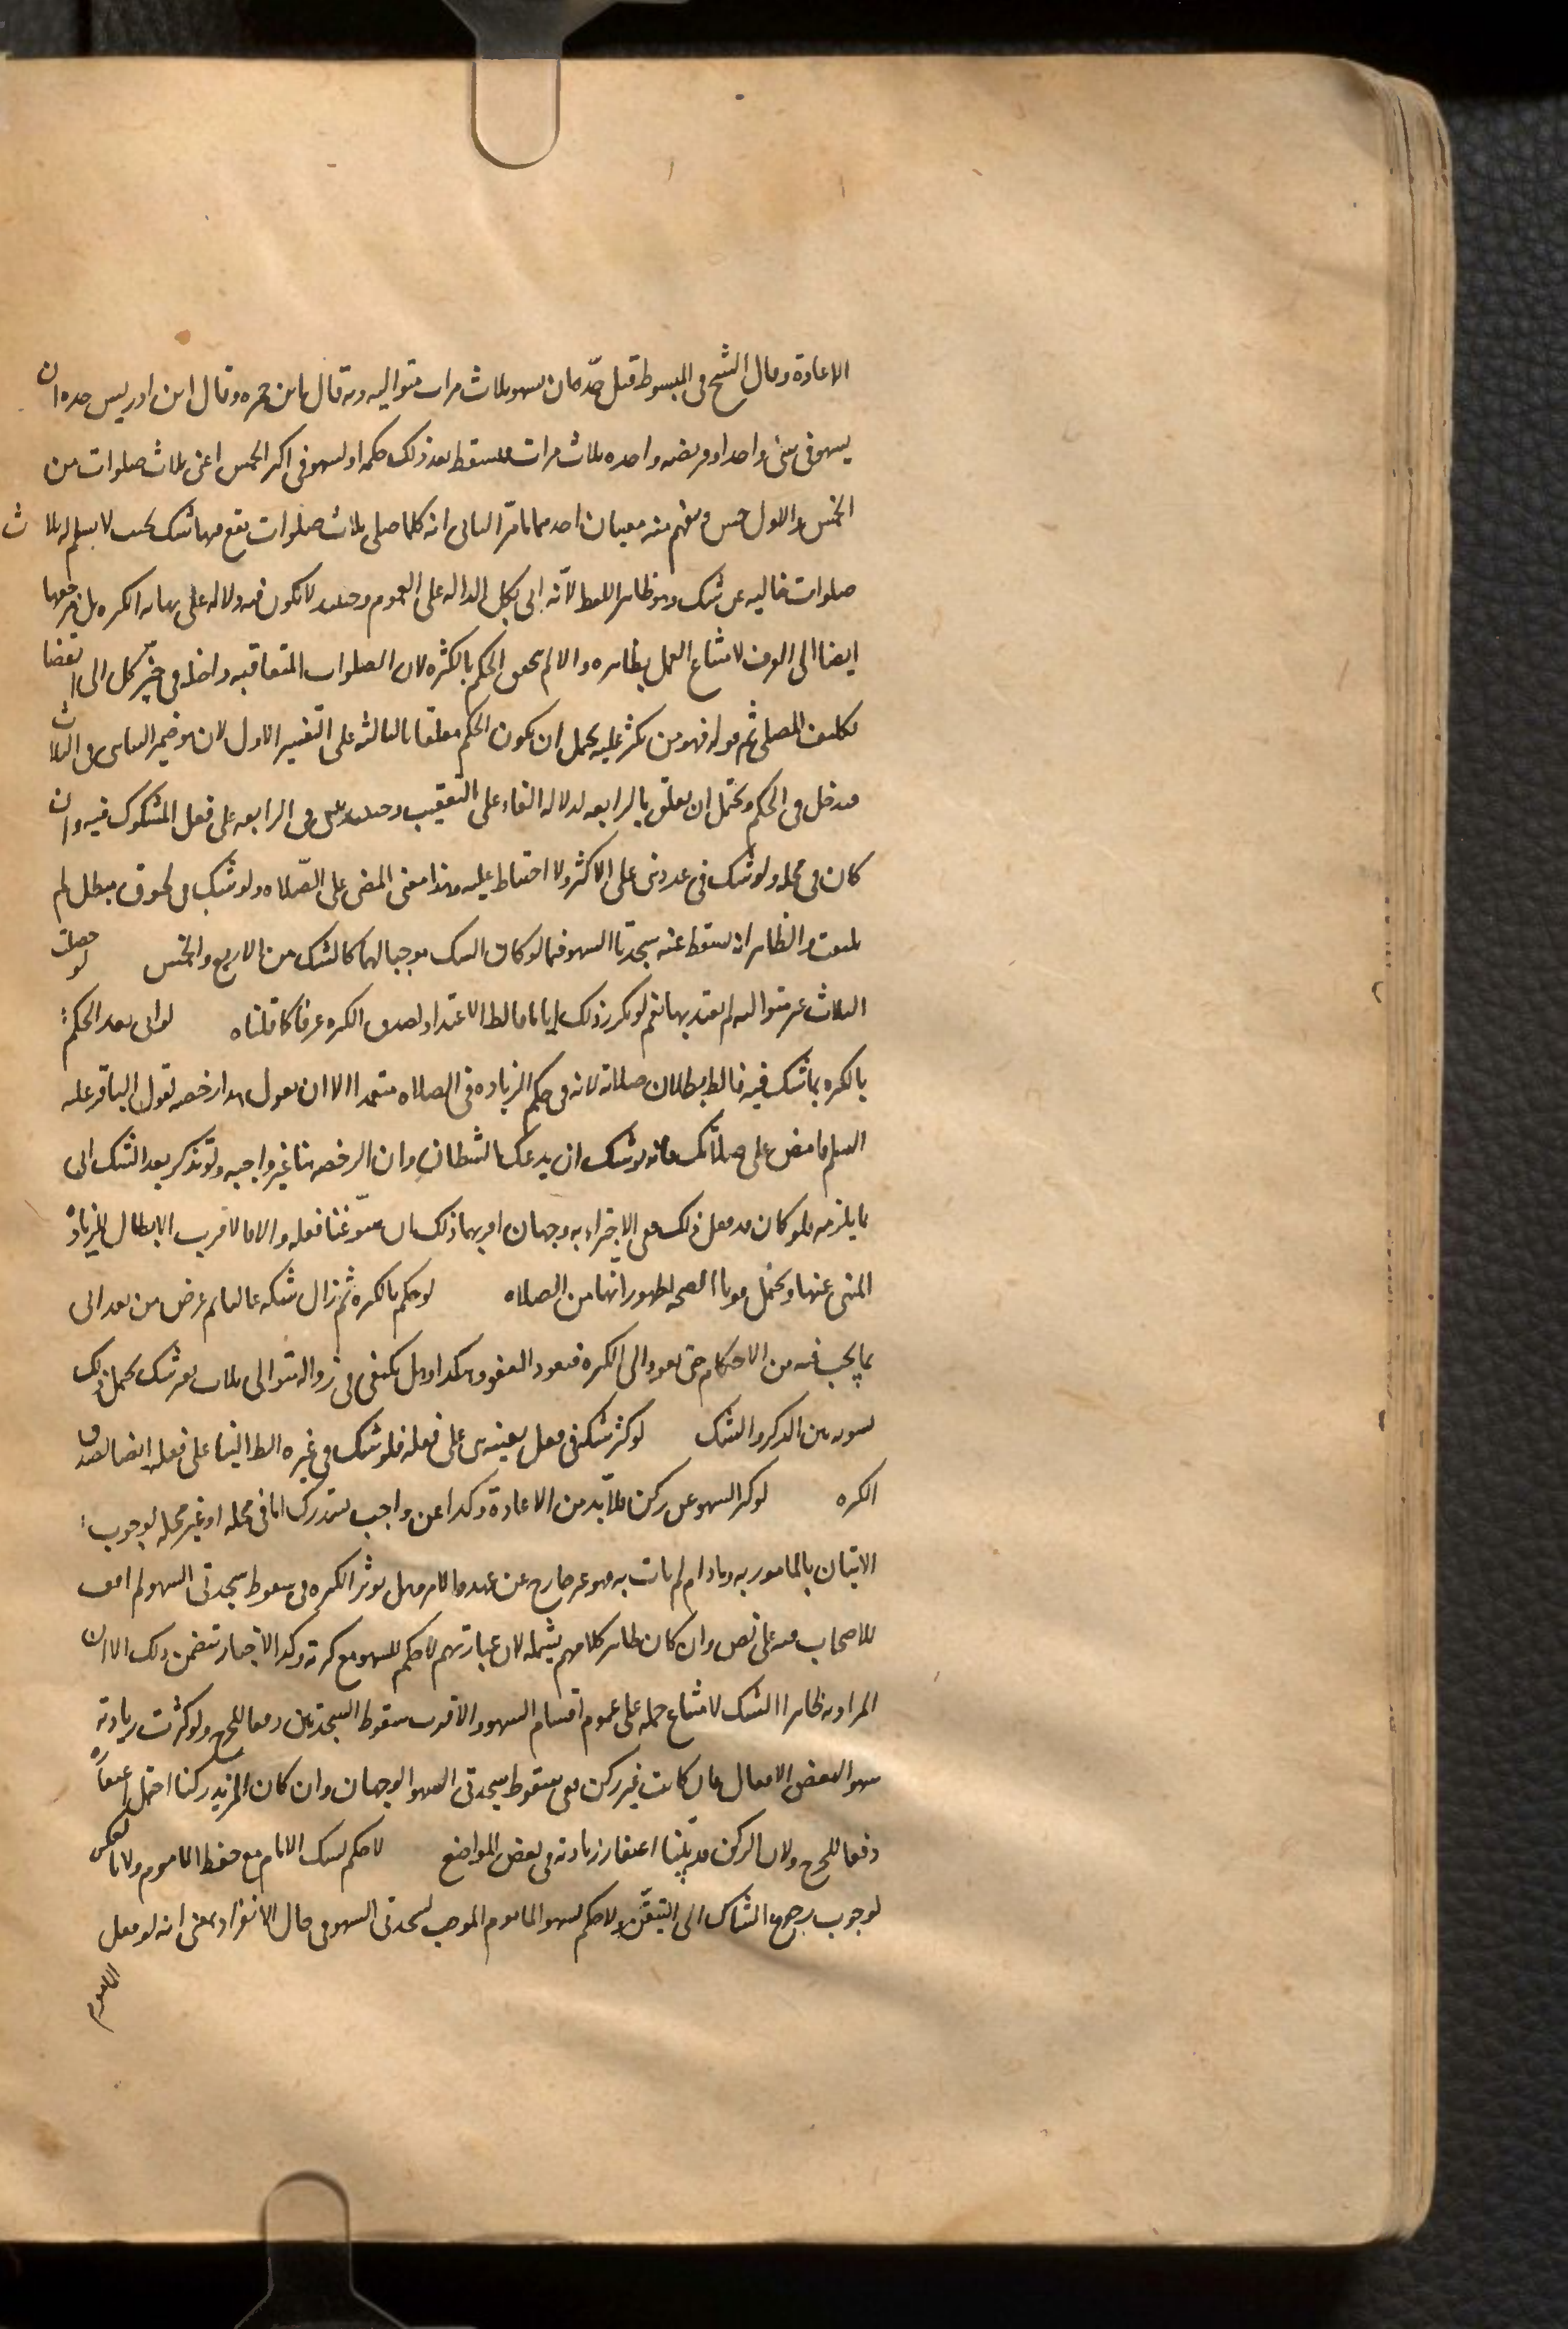 الاعادة وقال الشيخ فى المبسوط قيل حدّه ان يسهو ثلاث مرات متواليه وبه قال ابن حمزه وقال ابن ادريس حده ان
يسهو فى شئ واحد او فريضه واحده ثلاث مرات فيسقط بعد ذلك حكمه او يسهو فى اكثر الخمس اعنى ثلاث صلوات من
الخمس والاول حسن ويفهم منه معنيان احدهما ما مرّ الثانى انه كلما صلى ثلاث صلوات يقع فيها شك بحيث لا يسلم له ثلاث
صلوات خاليه عن شك وهو ظاهر اللفظ لانه اتى بكل الداله على العموم وحينئذ لا تكون فيه دلاله على نهايه الكثره بل مرجعها
ايضا الى العرف لامتناع العمل بظاهره والا لم يتحقق الحكم بالكثره لان الصلوات المتعاقبه داخله فى حيّز كل الى انقضا
تكليف المصلى ثم قوله فهو ممن كثر عليه يحتمل ان يكون الحكم معلقا بالثالثه على التفسير الاول لان هو ضمير الشاك فى الثلاث
فيدخل فى الحكم ويحتمل ان يعلق بالرابعه لدلاله الفاء على التعقيب وحينئذ يبنى فى الرابعه على فعل المشكوك فيه وان
كان فى محله ولو شك فى عدد بنى على الاكثر ولا احتياط عليه وهذا معنى المضى على الصّلاه ولو شك فى لحوق مبطل لم
يلتفت والظاهر انه يسقط عنه سجدتا السهو فيما لو كان الشك موجبا لهما كالشك بين الاربع والخمس لو حصلت
الثلاث غير متواليه لم يعتد بها نعم لو تكرر ذلك اياما فالظ الاعتداد لصدق الكثره عرفا كما قلناه لو اتى بعد الحكم
بالكثره بما شك فيه فالظ بطلان صلاته لانه فى حكم الزياده فى الصلاه متعمدا الا ان يقول هذا رخصه لقول الباقر عليه
السلم فامض على صلاتك فانه يوشك ان يدعك الشيطان وان الرخصه هنا غير واجبه ولو تذكر بعد الشك اتى
بما يلزمه فلو كان قد فعل ذلك ففى الاجتزاء به وجهان اقربهما ذلك ان سوّغنا فعله والا فالاقرب الابطال للزياده
المنهى عنها ويحتمل قويا الصحه لظهور انها من الصلاه لو حكم بالكثره ثم زال شكه غالبا ثم عرض من بعد اتى
بما يجب فيه من الاحكام حتى يعود الى الكثره فيعود العفو وهكذا وهل يكتفى فى زواله بتوالى ثلاث بغير شك يحتمل ذلك
تسويه بين الذكر والشك لو كثر شكه فى فعل بعينه بنى على فعله فلو شك فى غيره الظ البناء على فعله ايضا لصدق
الكثره لو كثر السهو عن ركن فلا بد من الاعادة وكذا عن واجب يستدرك اما فى محله او غير محله لوجوب
الاتيان بالمامور به وما دام لم يات به فهو غير خارج عن عهده الامر وهل يوثر الكثره فى سقوط سجدتى السهو لم اقف
للاصحاب فيه على نص وان كان ظاهر كلامهم يشمله لان عبارتهم لا حكم للسهو مع كثرته وكذا الاخبار تتضمن ذلك الا ان
المراد به ظاهرا الشك لامتناع حمله على عموم اقسام السهو والاقرب سقوط السجدتين دفعا للحرج ولو كثرت زيادته
سهوا لبعض الافعال فان كانت غير ركن ففى سقوط سجدتى السهو الوجهان وان كان المزيد ركنا احتمل اغتفاره
دفعا للحرج ولان الركن قد بيّنا اغتفار زيادته فى بعض المواضع لا حكم لشك الامام مع حفظ الماموم ولا بالعكس
لوجوب رجوع الشاك الى المتيقّن ولا حكم لسهو الماموم الموجب لسجدتى السهو فى حال الانفراد بمعنى انه لو فعل
الماموم